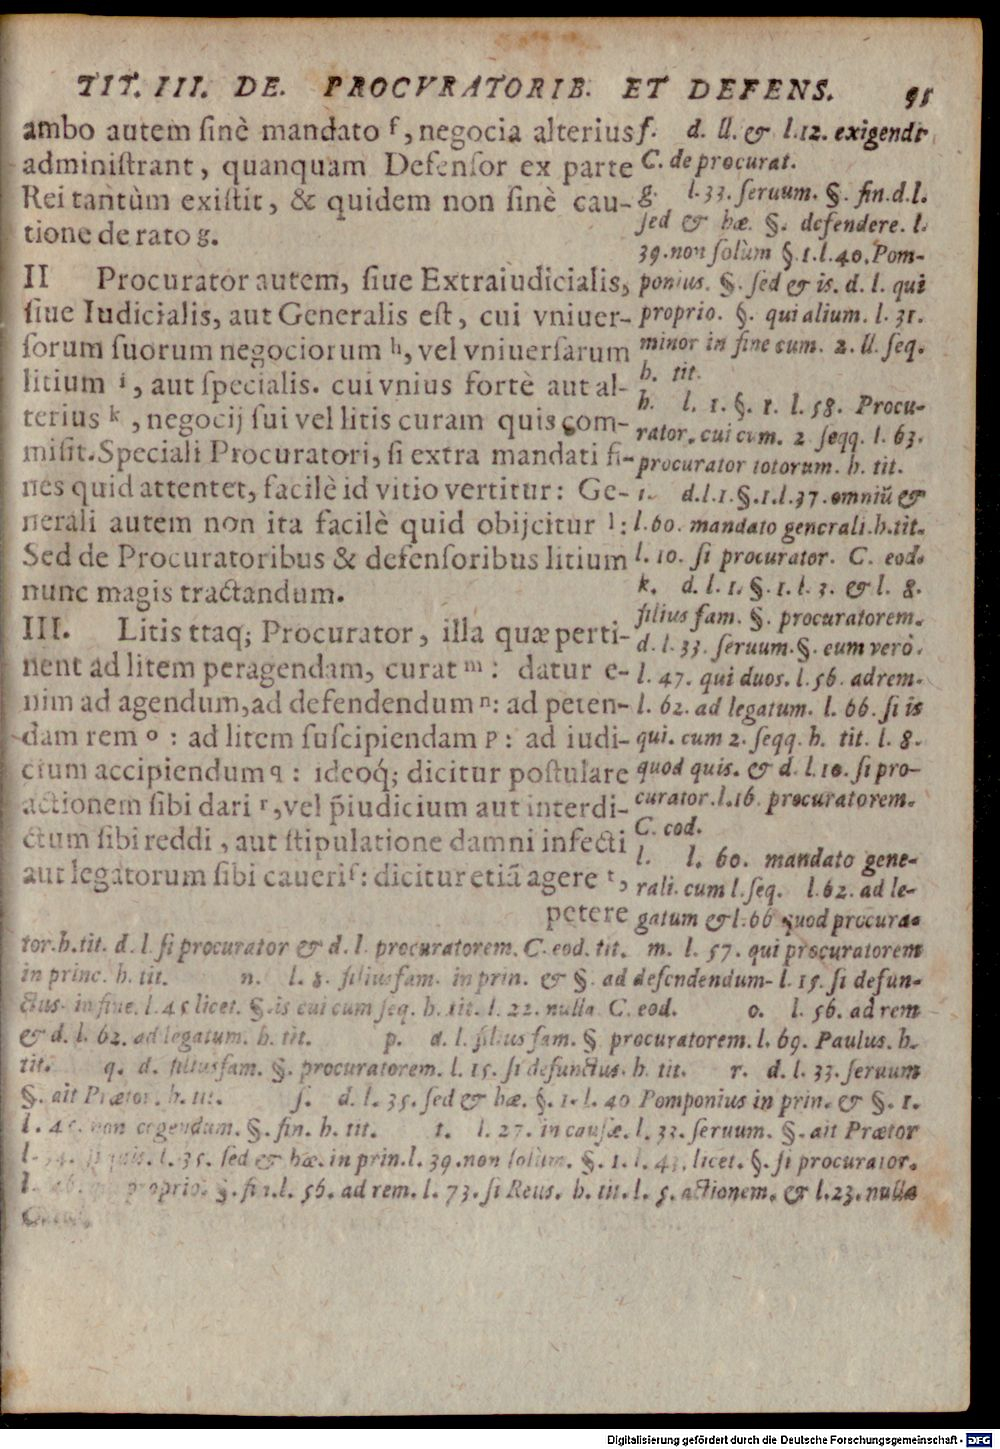 TIT. III. DE. PROCVRATORIB. ET DEFENS. 95
ambo autem ſinè mandato f, negocia alterius
adminiſtrant, quanquam Defenſor ex parte
Rei tantùm exiſtit, & quidem non ſinè cau-
tione de rato g.
II Procurator autem, ſiue Extraiudicialis,
ſiue Iudicialis, aut Generalis eſt, cui vniuer-
ſorum ſuorum negociorum h, vel vniuerſarum
litium i, aut ſpecialis. cui vnius fortè aut al-
terius k, negocij ſui vel litis curam quis com-
miſit. Speciali Procuratori, ſi extra mandati fi-
nes quid attentet, facilè id vitio vertitur: Ge-
nerali autem non ita facilè quid obijcitur l:
Sed de Procuratoribus & defenſoribus litium
nunc magis tractandum.
III. Litis ttaq; Procurator, illa quæ perti-
nent ad litem peragendam, curat m: datur e-
nim ad agendum, ad defendendum n: ad peten-
dam rem o: ad litem ſuſcipiendam p: ad iudi-
cium accipiendum q: ideoq́; dicitur poſtulare
actionem ſibi dari r, vel p̃iudicium aut interdi-
ctum ſibi reddi, aut ſtipulatione damni infecti
aut legatorum ſibi caueri ſ: dicitur etiã agere t,
petere
f. d. ll. & l. 12. exigendi
C. de procurat.
g. l. 33. ſeruum. §. fin. d. l.
ſed & hæ. §. defendere. l.
39. non ſolùm §. 1. l. 40. Pom-
ponius. §. ſed & is. d. l. qui
proprio. §. qui alium. l. 31.
minor in fine cum. 2. ll. ſeq.
h. tit.
h. l. 1. §. 1. l. 58. Procu-
rator. cui cum. 2 ſeqq. l. 63.
procurator totorum. h. tit.
i. d. l. 1. §. 1. l. 37. omniũ &
l. 60. mandato generali. h. tit.
l. 10. ſi procurator. C. eod.
k. d. l. 1. §. 1. l. 3. & l. 8.
filius fam. §. procuratorem.
d. l. 33. ſeruum. §. eum verò.
l. 47. qui duos. l. 56. ad rem.
l. 62. ad legatum. l. 66. ſi is
qui. cum 2. ſeqq. h. tit. l. 8.
quod quis. & d. l. 10. ſi pro-
curator. l. 16. procuratorem.
C. eod.
l. l. 60. mandato gene-
rali. cum l. ſeq. l. 62. ad le-
gatum & l. 66 quod procura-
tor. h. tit. d. l. ſi procurator & d. l. procuratorem. C. eod. tit. m. l. 57. qui procuratorem
in princ. h. tit. n. l. 8. filius fam. in prin. & §. ad defendendum- l. 15. ſi defun-
ctus. in fine. l. 45 licet. §. is cui cum ſeq. h. tit. l. 22. nulla C. eod. o. l. 56. ad rem
& d. l. 62. ad legatum. h. tit. p. d. l. filius fam. §. procuratorem. l. 69. Paulus. h.
tit. q. d. filius fam. §. procuratorem. l. 15. ſi defunctus. h. tit. r. d. l. 33. ſeruum
§. ait Prætor. h. tit. ſ. d. l. 35. ſed & hæ. §. 1. l. 40 Pomponius in prin. & §. 1.
l. 45. non cogendum. §. fin. h. tit. t. l. 27. in cauſæ. l. 33. ſeruum. §. ait Prætor
l. 34. ſi quis. l. 35. ſed & hæ. in prin. l. 39. non ſolùm. §. 1. l. 43. licet. §. ſi procurator.
l. 46. qui proprio. §. fin. l. 56. ad rem. l. 73. ſi Reus. h. tit. l. 5. actionem. & l. 23. nulla
Digitalisierung gefördert durch die Deutsche Forschungsgemeinschaft - DFG